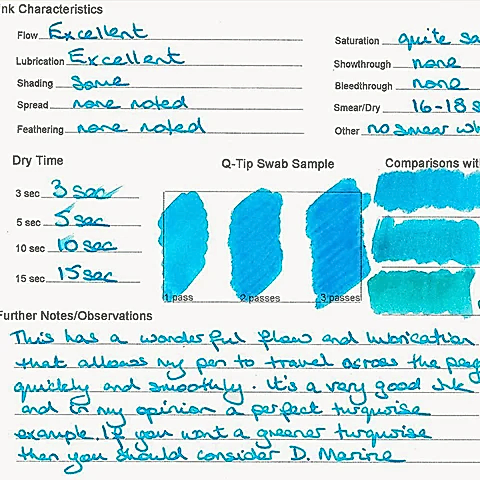 nk Characteristics
Flow Excellent
Lubrication Excellent
Shading Some
Spread none noted
Feathering none noted
Saturation quite sa
Showthrough none
Bleedthrough none
Smear/Dry 16-18 s
Other no smear wh
Dry Time
3 sec 3 sec
5 sec 5 sec
10 sec 10 sec
15 sec 15 sec
Q-Tip Swab Sample
1 pass 2 passes 3 passes
Comparisons wit
Further Notes/Observations
This has a wonderful flow and lubrication
that allows my pen to travel across the pag
quickly and smoothly. It's a very good ink
and in my opinion a perfect turquoise
example. If you want a greener turquoise
then you should consider D. Marine